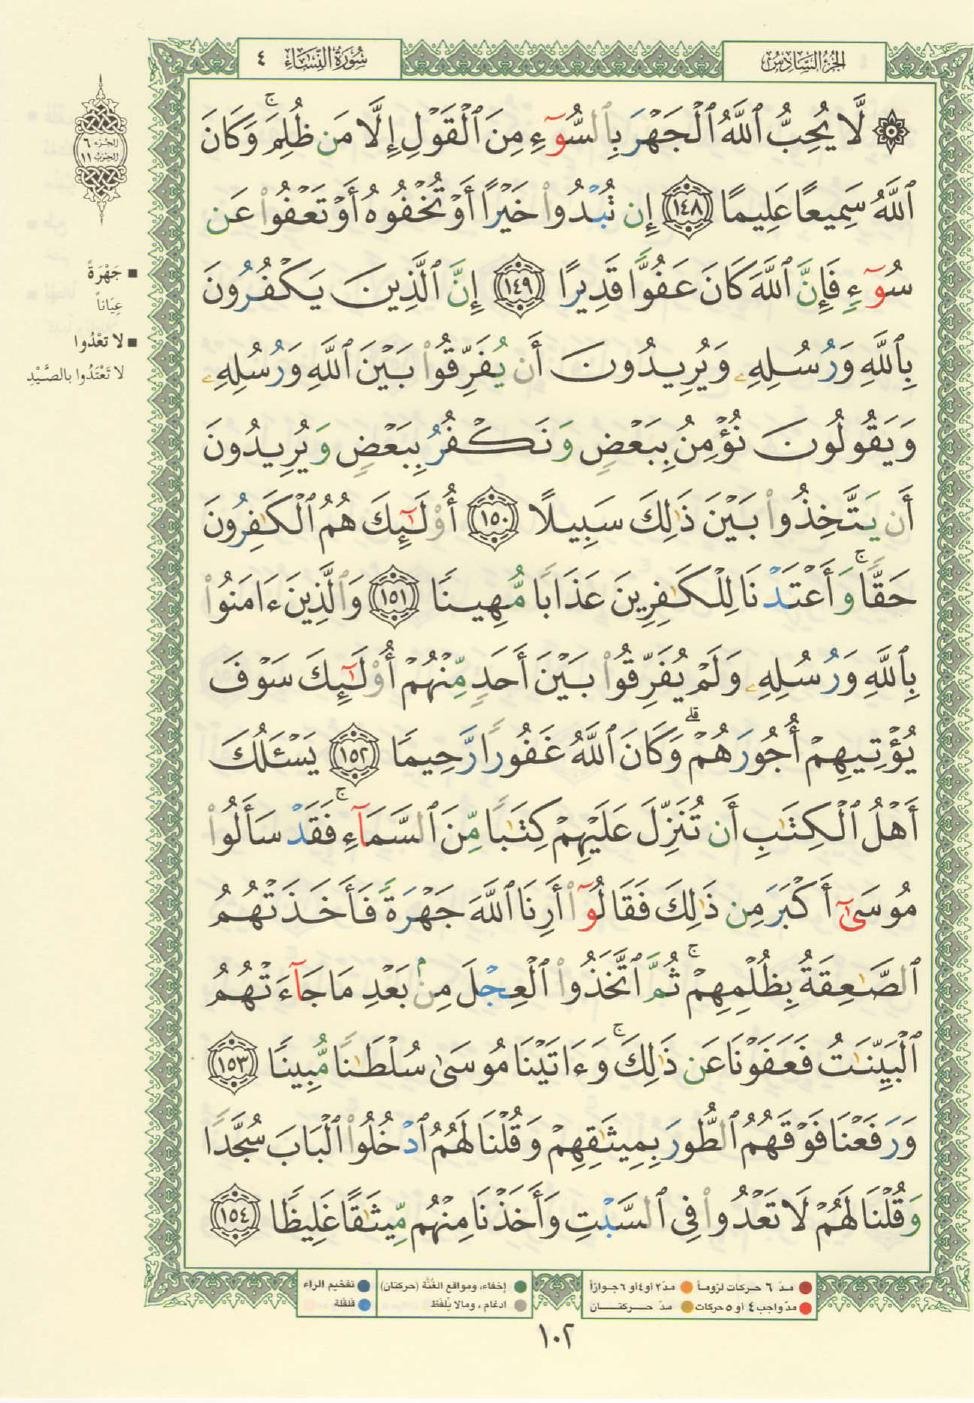 الجزء السادس
سورة النساء ٤
الجزء ٦
الحزب ١١
۞ لَّا يُحِبُّ ٱللَّهُ ٱلْجَهْرَ بِٱلسُّوٓءِ مِنَ ٱلْقَوْلِ إِلَّا مَن ظُلِمَ ۚ وَكَانَ
ٱللَّهُ سَمِيعًا عَلِيمًا ١٤٨ إِن تُبْدُوا۟ خَيْرًا أَوْ تُخْفُوهُ أَوْ تَعْفُوا۟ عَن
سُوٓءٍ فَإِنَّ ٱللَّهَ كَانَ عَفُوًّا قَدِيرًا ١٤٩ إِنَّ ٱلَّذِينَ يَكْفُرُونَ
بِٱللَّهِ وَرُسُلِهِۦ وَيُرِيدُونَ أَن يُفَرِّقُوا۟ بَيْنَ ٱللَّهِ وَرُسُلِهِۦ
وَيَقُولُونَ نُؤْمِنُ بِبَعْضٍ وَنَكْفُرُ بِبَعْضٍ وَيُرِيدُونَ
أَن يَتَّخِذُوا۟ بَيْنَ ذَٰلِكَ سَبِيلًا ١٥٠ أُو۟لَٰٓئِكَ هُمُ ٱلْكَٰفِرُونَ
حَقًّا ۚ وَأَعْتَدْنَا لِلْكَٰفِرِينَ عَذَابًا مُّهِينًا ١٥١ وَٱلَّذِينَ ءَامَنُوا۟
بِٱللَّهِ وَرُسُلِهِۦ وَلَمْ يُفَرِّقُوا۟ بَيْنَ أَحَدٍ مِّنْهُمْ أُو۟لَٰٓئِكَ سَوْفَ
يُؤْتِيهِمْ أُجُورَهُمْ ۗ وَكَانَ ٱللَّهُ غَفُورًا رَّحِيمًا ١٥٢ يَسْـَٔلُكَ
أَهْلُ ٱلْكِتَٰبِ أَن تُنَزِّلَ عَلَيْهِمْ كِتَٰبًا مِّنَ ٱلسَّمَآءِ ۚ فَقَدْ سَأَلُوا۟
مُوسَىٰٓ أَكْبَرَ مِن ذَٰلِكَ فَقَالُوٓا۟ أَرِنَا ٱللَّهَ جَهْرَةً فَأَخَذَتْهُمُ
ٱلصَّٰعِقَةُ بِظُلْمِهِمْ ۚ ثُمَّ ٱتَّخَذُوا۟ ٱلْعِجْلَ مِنۢ بَعْدِ مَا جَآءَتْهُمُ
ٱلْبَيِّنَٰتُ فَعَفَوْنَا عَن ذَٰلِكَ ۚ وَءَاتَيْنَا مُوسَىٰ سُلْطَٰنًا مُّبِينًا ١٥٣
وَرَفَعْنَا فَوْقَهُمُ ٱلطُّورَ بِمِيثَٰقِهِمْ وَقُلْنَا لَهُمُ ٱدْخُلُوا۟ ٱلْبَابَ سُجَّدًا
وَقُلْنَا لَهُمْ لَا تَعْدُوا۟ فِى ٱلسَّبْتِ وَأَخَذْنَا مِنْهُم مِّيثَٰقًا غَلِيظًا ١٥٤
■ جَهْرَةً
عِيَاناً
■ لا تَعْدُوا
لا تَعْتَدُوا بالصَّيْدِ
مدّ ٦ حركات لزوماً ● مدّ ٢ أو ٤ أو ٦ جوازاً
مدّ واجب ٤ أو ٥ حركات ● مدّ حركتان
إخفاء، ومواقع الغُنَّة (حركتان) ● تفخيم الراء
ادغام، وما لا يُلفَظ ● قلقلة
١٠٢